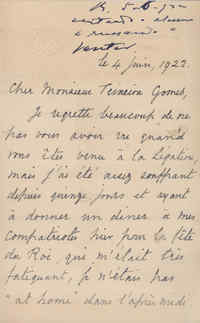 le 4 juin, 1922.
Cher Monsieur Teixeira Gomes,
Je regrette beaucoup de ne
pas vous avoir vu quand
vous êtes venu à la Légation,
mais j'ai été assez souffrant
depuis quinze jours et ayant
à donner un diner à mes
compatriotes hier pour la fête
du Roi, que m'était très
fatiguant, je n'étais pas
"at home" dans l'après midi